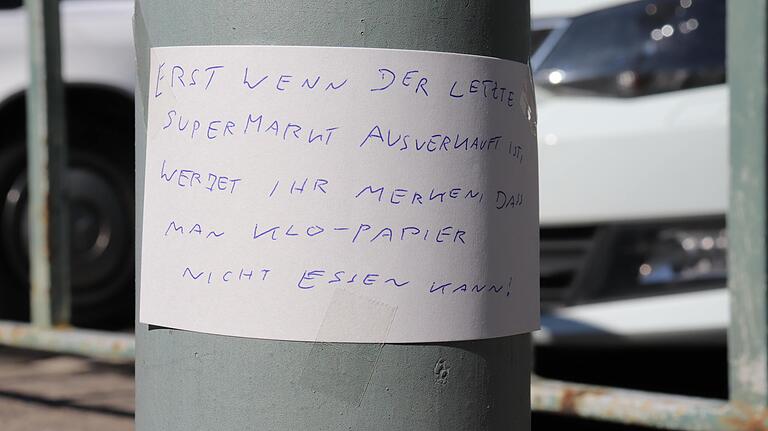 ERST WENN DER LETZTE
SUPERMARKT AUSVERKAUFT IST,
WERDET IHR MERKEN, DASS
MAN KLO-PAPIER
NICHT ESSEN KANN!